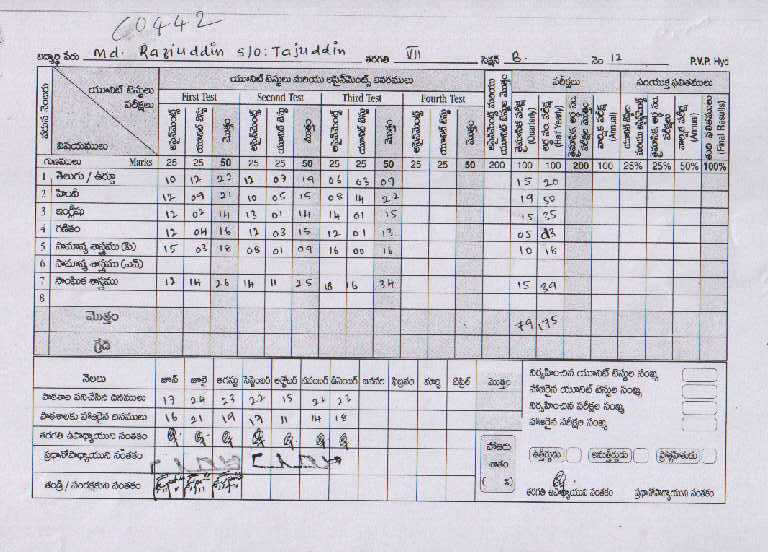 C0442
విద్యార్థి పేరు Md. Raziuddin s/o: Tajuddin తరగతి VII సెక్షన్ B. నెం 12 P.V.P. Hyd
వరుస నెంబరు యూనిట్ టెస్టులు పరీక్షలు యూనిట్ టెస్టులు మరియు అసైన్‌మెంట్స్ వివరములు పరీక్షలు సంయుక్త ఫలితములు
First Test Second Test Third Test Fourth Test
విషయములు అసైన్‌మెంట్స్ యూనిట్ టెస్ట్ మొత్తం అసైన్‌మెంట్స్ యూనిట్ టెస్ట్ మొత్తం అసైన్‌మెంట్స్ యూనిట్ టెస్ట్ మొత్తం అసైన్‌మెంట్స్ యూనిట్ టెస్ట్ మొత్తం (Quarterly) (Half Yearly) (Annual) (Annual) (Final Results)
గుణములు Marks 25 25 50 25 25 50 25 25 50 25 25 50 200 100 100 200 100 25% 25% 50% 100%
1 తెలుగు / ఉర్దూ 10 12 22 12 07 19 06 03 09 15 20
2 హిందీ 12 09 21 10 05 15 08 14 22 19 50
3 ఇంగ్లీషు 12 02 14 13 01 14 14 01 15 15 35
4 గణితం 12 04 16 12 03 15 12 01 13 05 13
5 సామాన్య శాస్త్రము (పి) 15 03 18 08 01 09 16 00 16 10 18
6 సామాన్య శాస్త్రము (ఎన్)
7 సాంఘిక శాస్త్రము 12 14 26 14 11 25 18 16 34 15 39
8
మొత్తం 79 175
గ్రేడి
నెలలు జూన్ జూలై ఆగస్టు సెప్టెంబర్ అక్టోబర్ నవంబర్ డిసెంబర్ జనవరి ఫిబ్రవరి మార్చి ఏప్రిల్ మొత్తం
నిర్వహించిన యూనిట్ టెస్టుల సంఖ్య
పాఠశాల పనిచేసిన దినములు 17 24 23 22 15 22 23
హాజరైన యూనిట్ టెస్టుల సంఖ్య
పాఠశాలకు హాజరైన దినములు 16 21 19 19 11 14 18
నిర్వహించిన పరీక్షల సంఖ్య
హాజరైన పరీక్షల సంఖ్య
తరగతి ఉపాధ్యాయుని సంతకం
ప్రధానోపాధ్యాయుని సంతకం హాజరు శాతం ( %) ఉత్తీర్ణుడు అనుత్తీర్ణుడు
తండ్రి / సంరక్షకుని సంతకం తరగతి ఉపాధ్యాయుని సంతకం ప్రధానోపాధ్యాయుని సంతకం